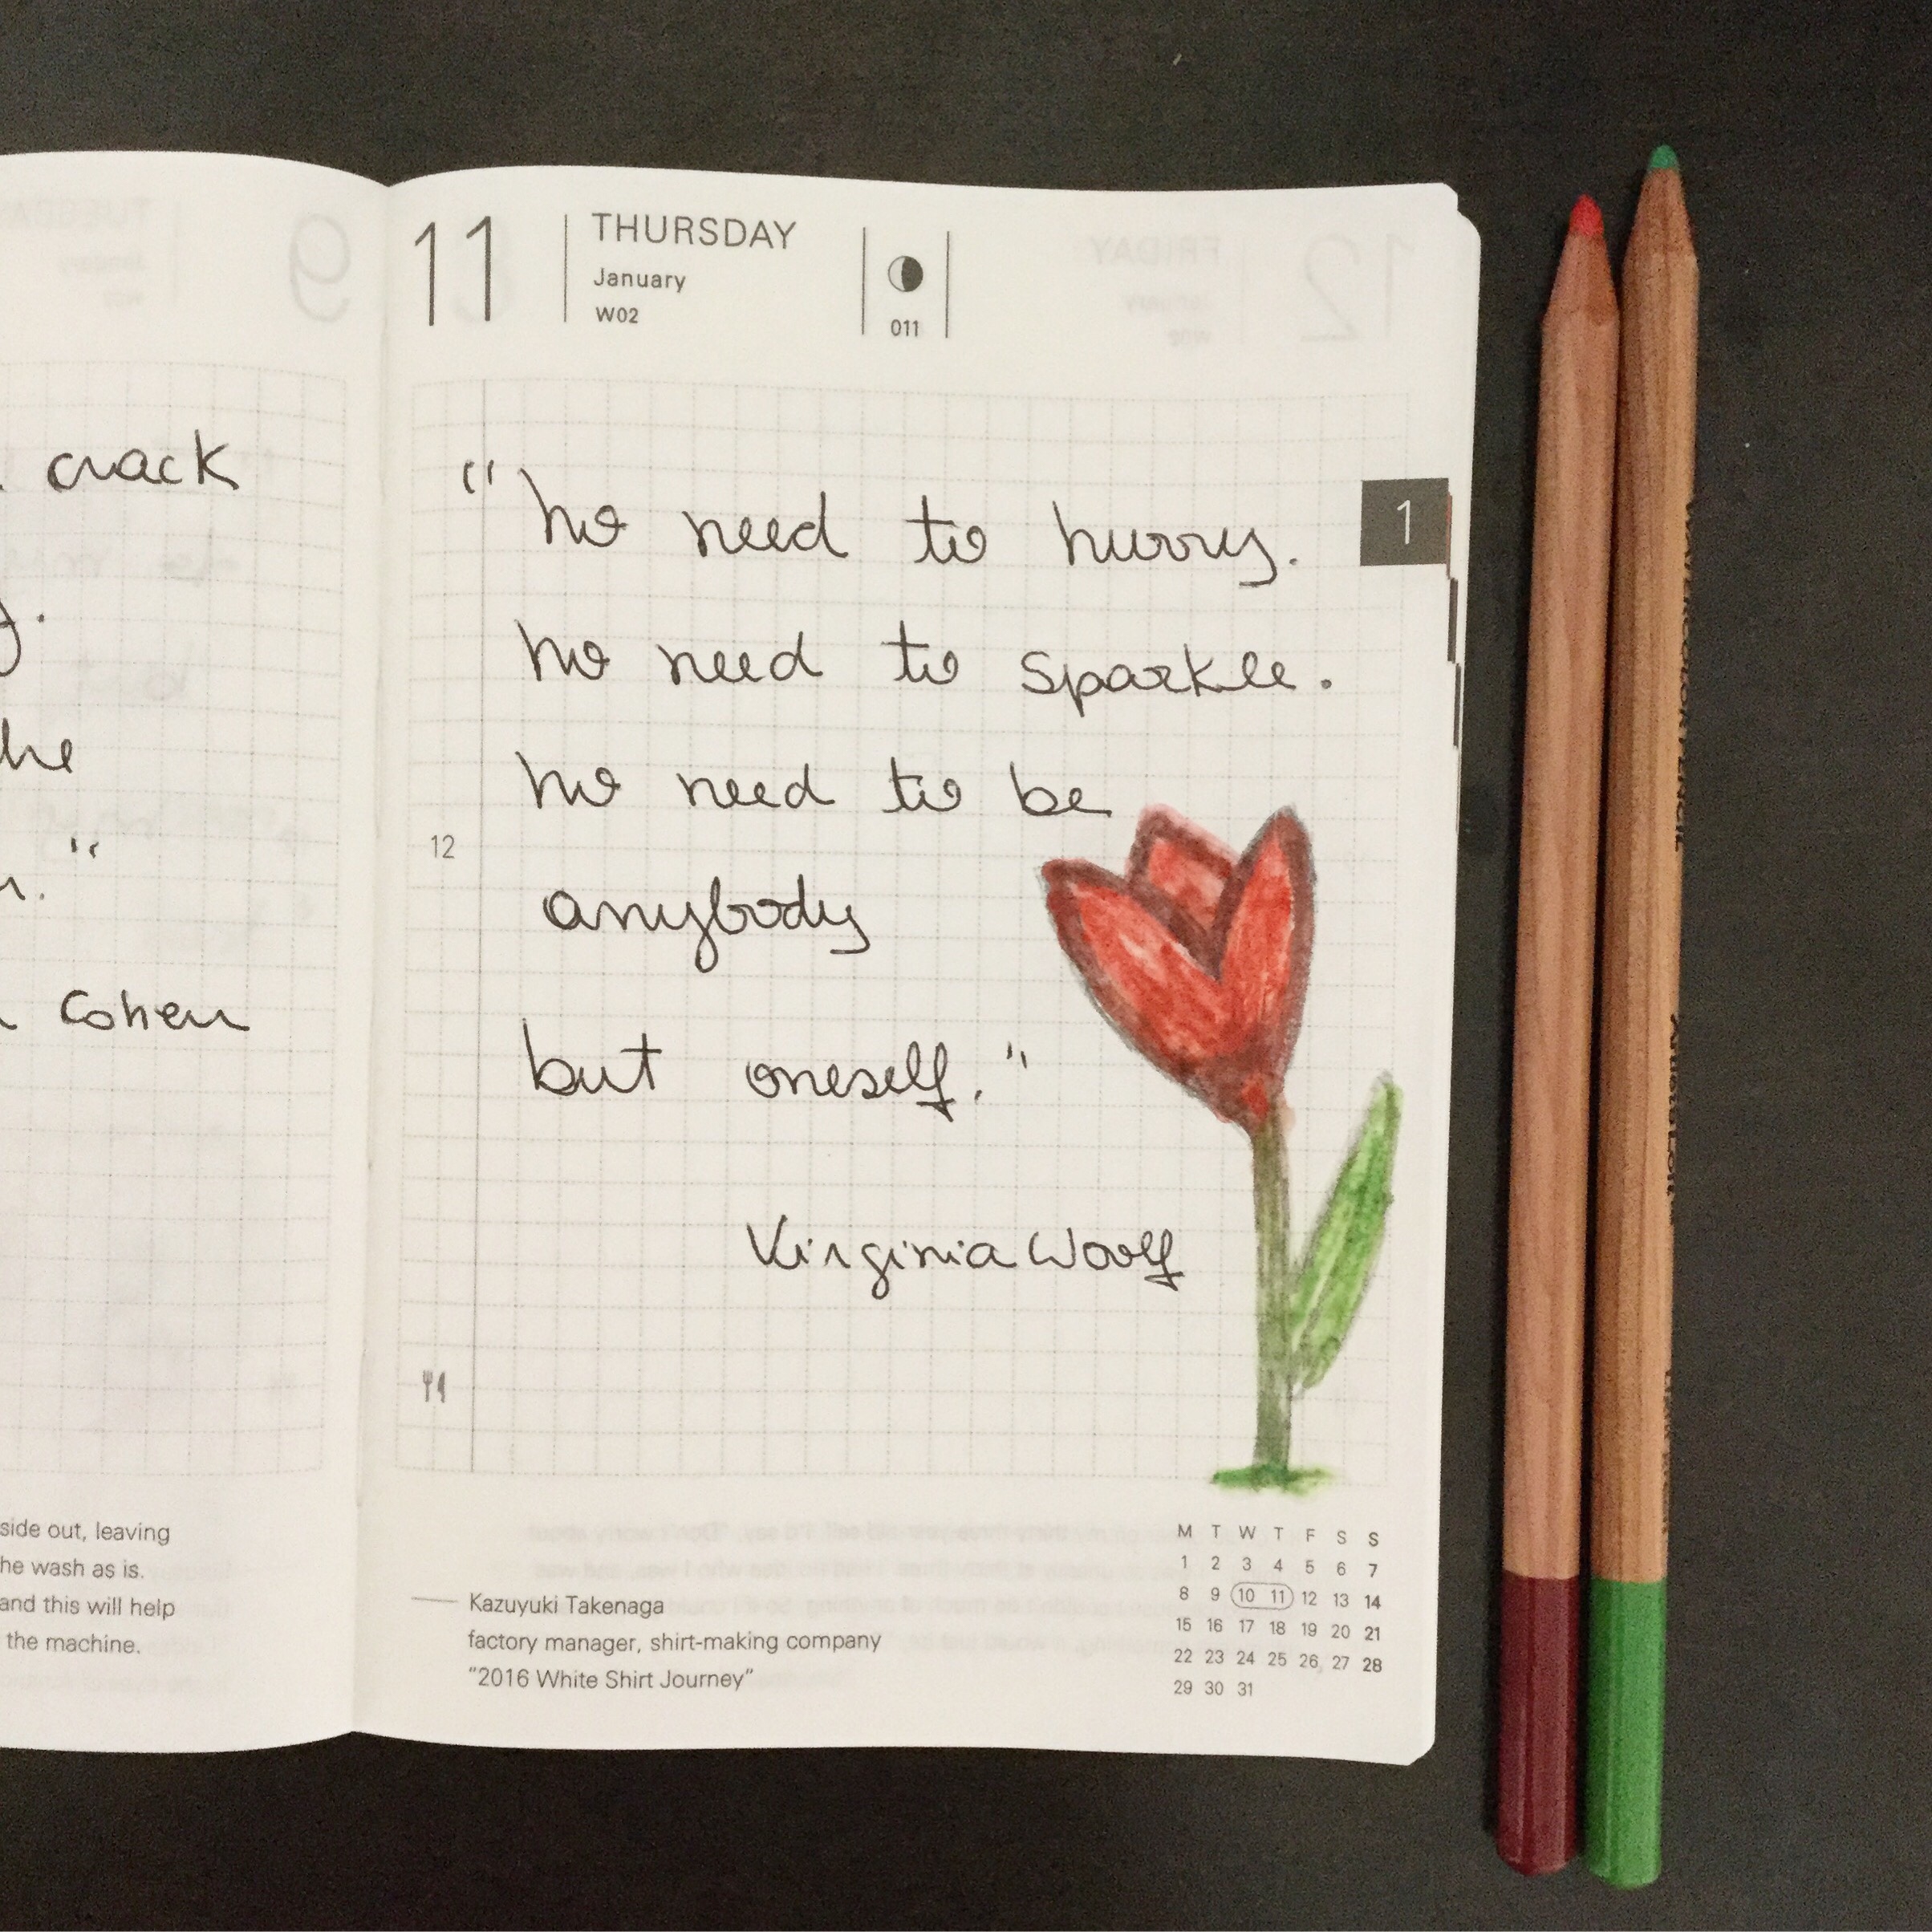 crack
he
."
Cohen
side out, leaving
he wash as is.
and this will help
the machine.
11
THURSDAY
January
W02
011
1
"No need to hurry.
No need to sparkle.
No need to be
12
anybody
but oneself."
Virginia Woolf
Kazuyuki Takenaga
factory manager, shirt-making company
"2016 White Shirt Journey"
M T W T F S S
1 2 3 4 5 6 7
8 9 10 11 12 13 14
15 16 17 18 19 20 21
22 23 24 25 26 27 28
29 30 31